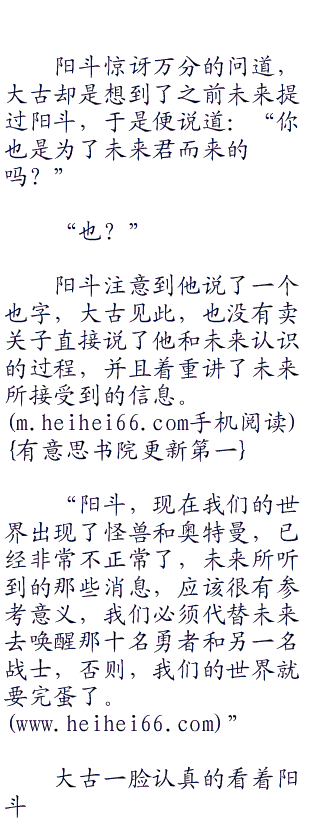 阳斗惊讶万分的问道，
大古却是想到了之前未来提
过阳斗，于是便说道：“你
也是为了未来君而来的
吗？”
“也？”
阳斗注意到他说了一个
也字，大古见此，也没有卖
关子直接说了他和未来认识
的过程，并且着重讲了未来
所接受到的信息。
(m.heihei66.com手机阅读)
{有意思书院更新第一}
“阳斗，现在我们的世
界出现了怪兽和奥特曼，已
经非常不正常了，未来所听
到的那些消息，应该很有参
考意义，我们必须代替未来
去唤醒那十名勇者和另一名
战士，否则，我们的世界就
要完蛋了。
(www.heihei66.com)”
大古一脸认真的看着阳
斗